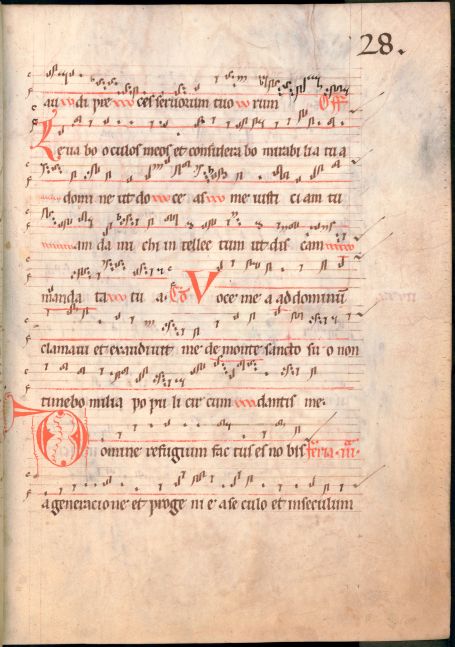 28.
au di pre ces seruorum tuo rum Off
Leua bo oculos meos et considera bo mirabi lia tu a
domi ne ut do ce as me iusti ci am tu
am da mi chi in tellec tum ut dis cam
manda ta tu a. Co Voce me a ad dominū
clamaui et exaudiuit me de monte sancto su o non
timebo milia po pu li cir cum dantis me.
Domine refugium fac tus es no bis feria iii.
a generacio ne et proge ni e a se culo et in seculum